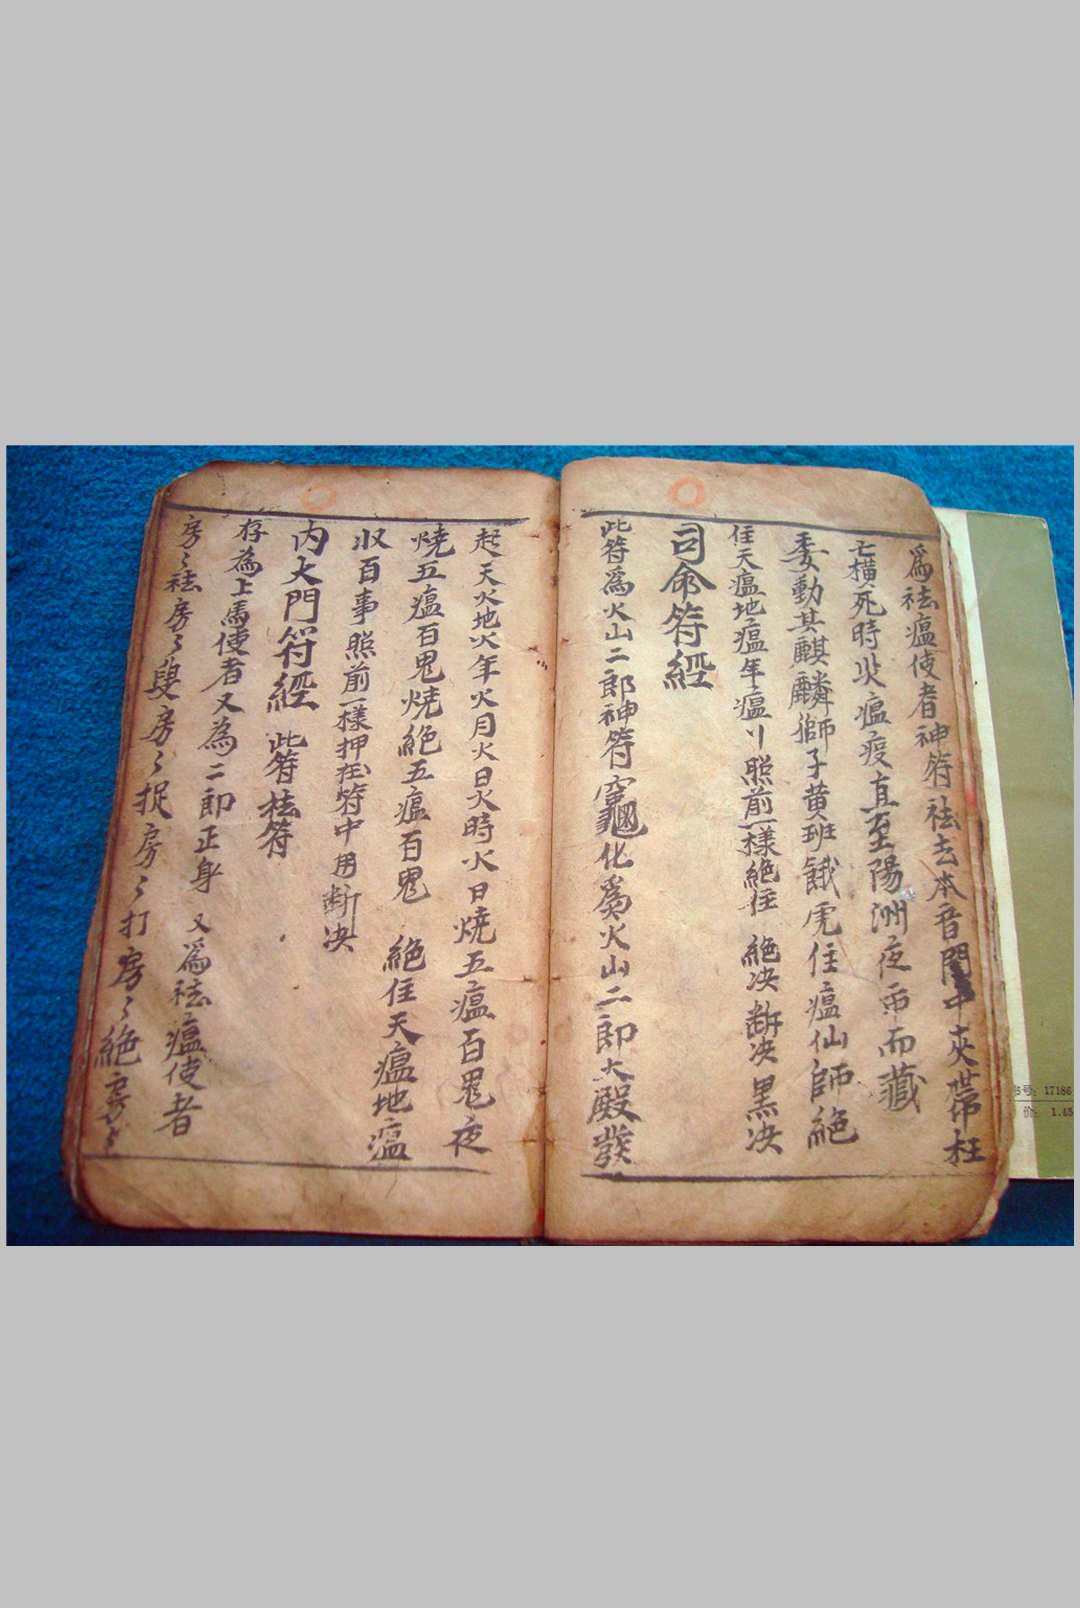 為祛瘟使者神符祛去本音門中夾帶枉
亡橫死時災瘟疫直至陽洲夜而藏
委動其麒麟獅子黃班餓虎住瘟仙師絕
住天瘟地瘟年瘟刂照前一樣絕住 絕决斷决黑决
司命符經
此符為火山二郎神符竈化為火山二郎大殿發
起天火地火年火月火日火時火日燒五瘟百鬼夜
燒五瘟百鬼燒絕五瘟百鬼 絕住天瘟地瘟
收百事照前一樣押在符中用斷决
内大門符經 此符祛符
存為上馬使者又為二郎正身 又為祛瘟使者
房〻祛房〻叟房〻捉房〻打房〻絕
书号: 17186
价: 1.45